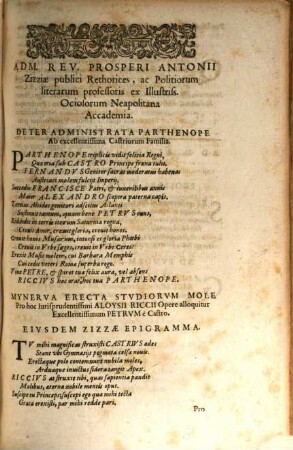 ADM. REV. PROSPERI ANTONII
Zizziæ publici Rethorices, ac Politiorum
literarum professoris ex Illustriss.
Ociosorum Neapolitana
Accademia.
DE TER ADMINISTRATA PARTHENOPE
Ab excellentissima Castriorum Familia.
PARTHENOPE triplici vidit felicia Regni,
Quo mea sub CASTRO Principe fræna tulit.
FERNANDVS Genitor sacras moderatus habenas
Imperij.
Inde FRANCISCE Patri, &
Mox ALEXANDRO sceptra paterna capis.
Tertius Alcides genitori adscitus Atlanti
quam bene PETRVS onus,
Sub te in terris iterum Saturnia regna,
Crevit Amor, crevit gloria, crevit honos.
Crevit honos Musarum, crevit & gloria Phœbi
Crevit in Vrbe sagax, crevit in Vrbe Ceres:
Erexit Musis molem, cui Barbara Memphis
Cui cedet veteri Roma superba rogo.
Vive PETRE, & spiret tua felix aura, vel absens
RICCIVS hoc orat, hoc tua PARTHENOPE.
MYNERVA ERECTA STVDIORVM MOLE
Pro hoc Iurisprudentissimi ALOYSII RICCII Opere alloquitur
Excellentissimum PETRVM è Castro.
EIVSDEM ZIZZÆ EPIGRAMMA.
TV mihi magnificas struxisti CASTRIVS ædes
Stant tibi Gymnasijs pegmata celsa nouis.
Erectaque polo contemnunt nubila moles,
Arduaque inuictus sidera tangit Apex.
RICCIVS at struxit tibi, quas sapientia pandit
Molibus, æterna nobile mentis opus.
Suscipe tu Princeps; suscepi ego qua mihi tecta
Grata erexisti, par mihi redde pari,
Pro